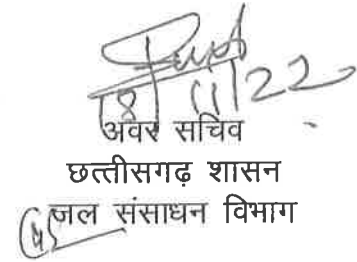 18/11/22
अवर सचिव
छत्तीसगढ़ शासन
जल संसाधन विभाग